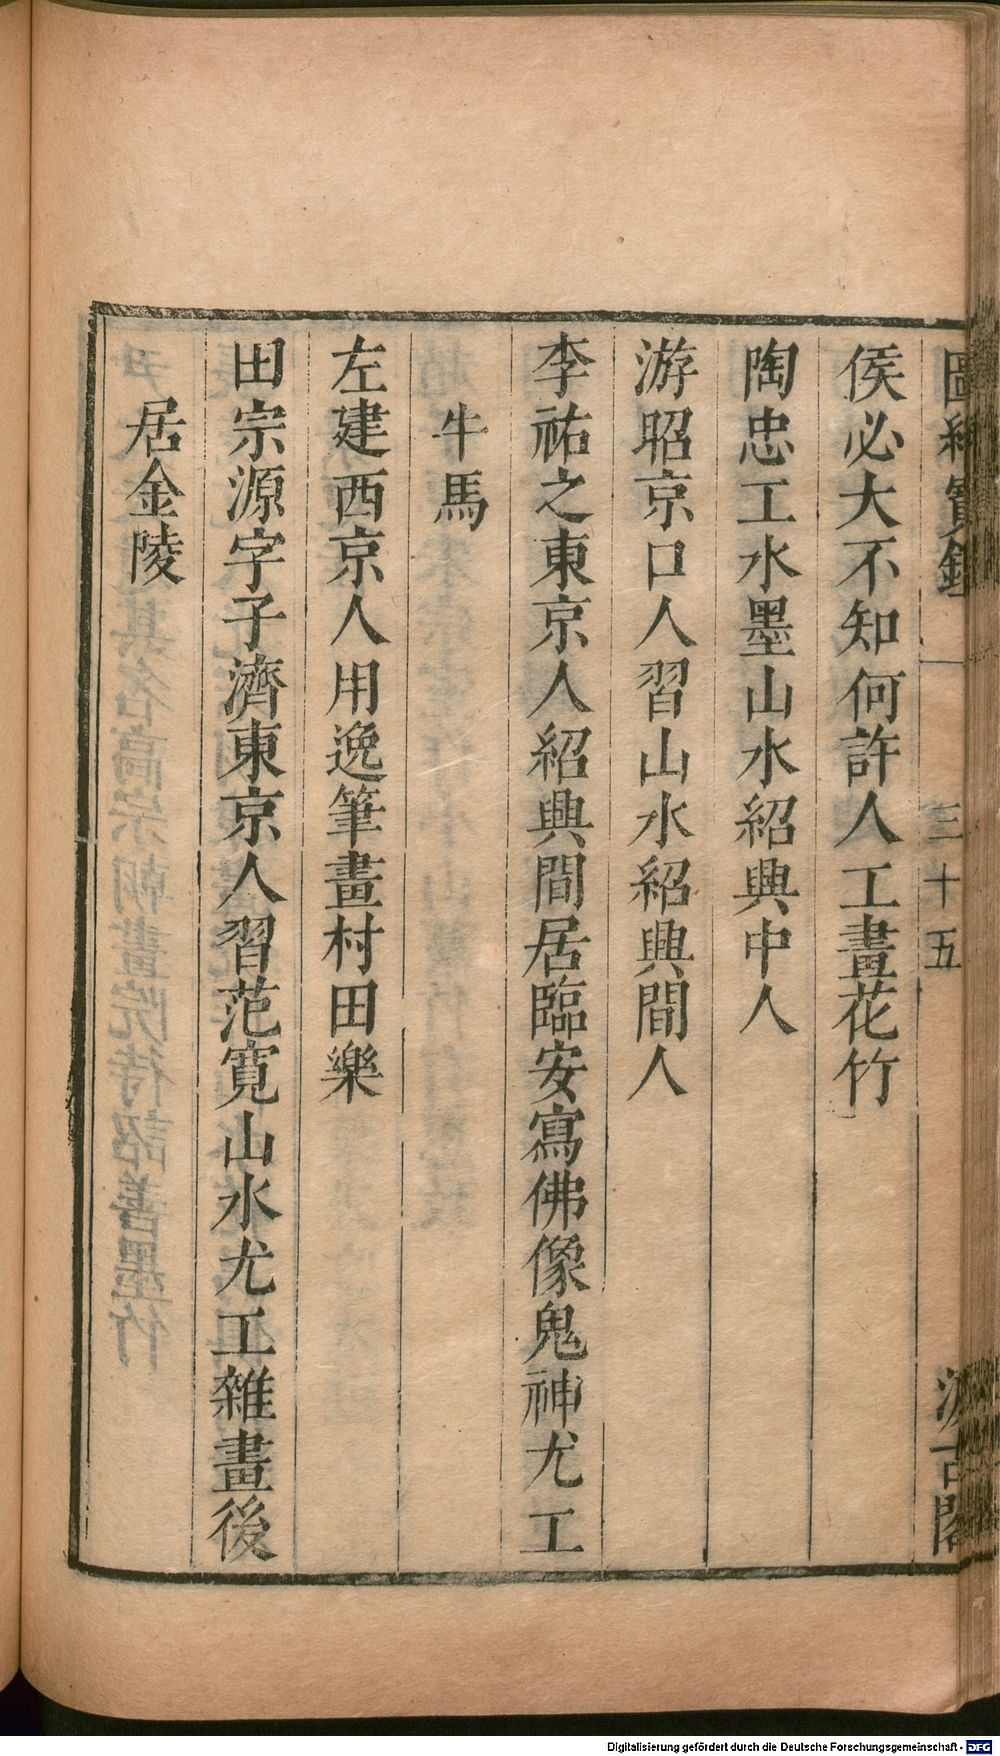 圖繪寶鑑
三十五
汲古閣
侯必大不知何許人工畫花竹
陶忠工水墨山水紹興中人
游昭京口人習山水紹興間人
李祐之東京人紹興間居臨安寫佛像鬼神尤工
牛馬
左建西京人用逸筆畫村田樂
田宗源字子濟東京人習范寬山水尤工雜畫後
居金陵
Digitalisierung gefördert durch die Deutsche Forschungsgemeinschaft - DFG